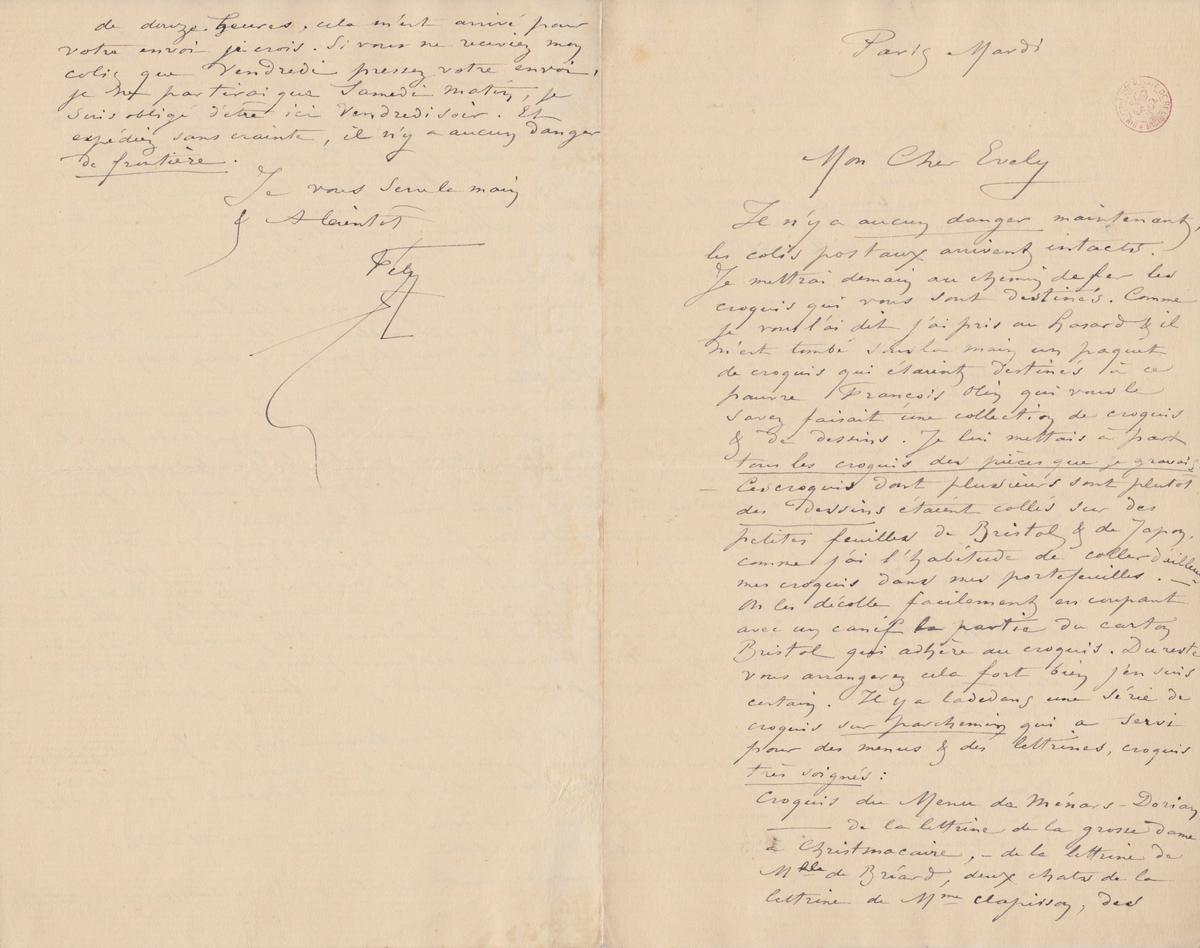 Paris Mardi
Mon Cher Evely
Il n'y a aucun danger maintenant,
les colis postaux arrivent intacts.
Je mettrai demain au chemin de fer les
croquis qui vous sont destinés. Comme
je vous l'ai dit j'ai pris au hasard & il
m'est tombé sous la main un paquet
de croquis qui étaient destinés à ce
pauvre François qui vous le
savez faisait une collection de croquis
& de dessins. Je lui mettais à part
tous les croquis des pièces que je gravais
– Ces croquis dont plusieurs sont plutôt
des dessins étaient collés sur des
petites feuilles de Bristol & de Japon,
comme j'ai l'habitude de coller d'ailleurs
mes croquis dans mes portefeuilles. –
On les décolle facilement en coupant
avec un canif la partie du carton
Bristol qui adhère au croquis. Du reste
vous arrangerez cela fort bien j'en suis
certain. Il y a ladedans une série de
croquis sur parchemin qui a servi
pour des menus & des lettrines, croquis
très soignés :
Croquis du Menu de Ménars-Dorian
—— de la lettrine de la grosse dame
a Christmacaire, – de la lettrine de
Mlle de Bréard, deux chats de la
lettrine de Mme Clapisson, des
de douze heures, cela m'est arrivé pour
votre envoi je crois. Si vous ne receviez mon
colis que Vendredi pressez votre envoi,
je ne partirai que Samedi matin, je
suis obligé d'être ici Vendredi soir. Et
expédiez sans crainte, il n'y a aucun danger
de frontière.
Je vous serre la main
& A bientôt